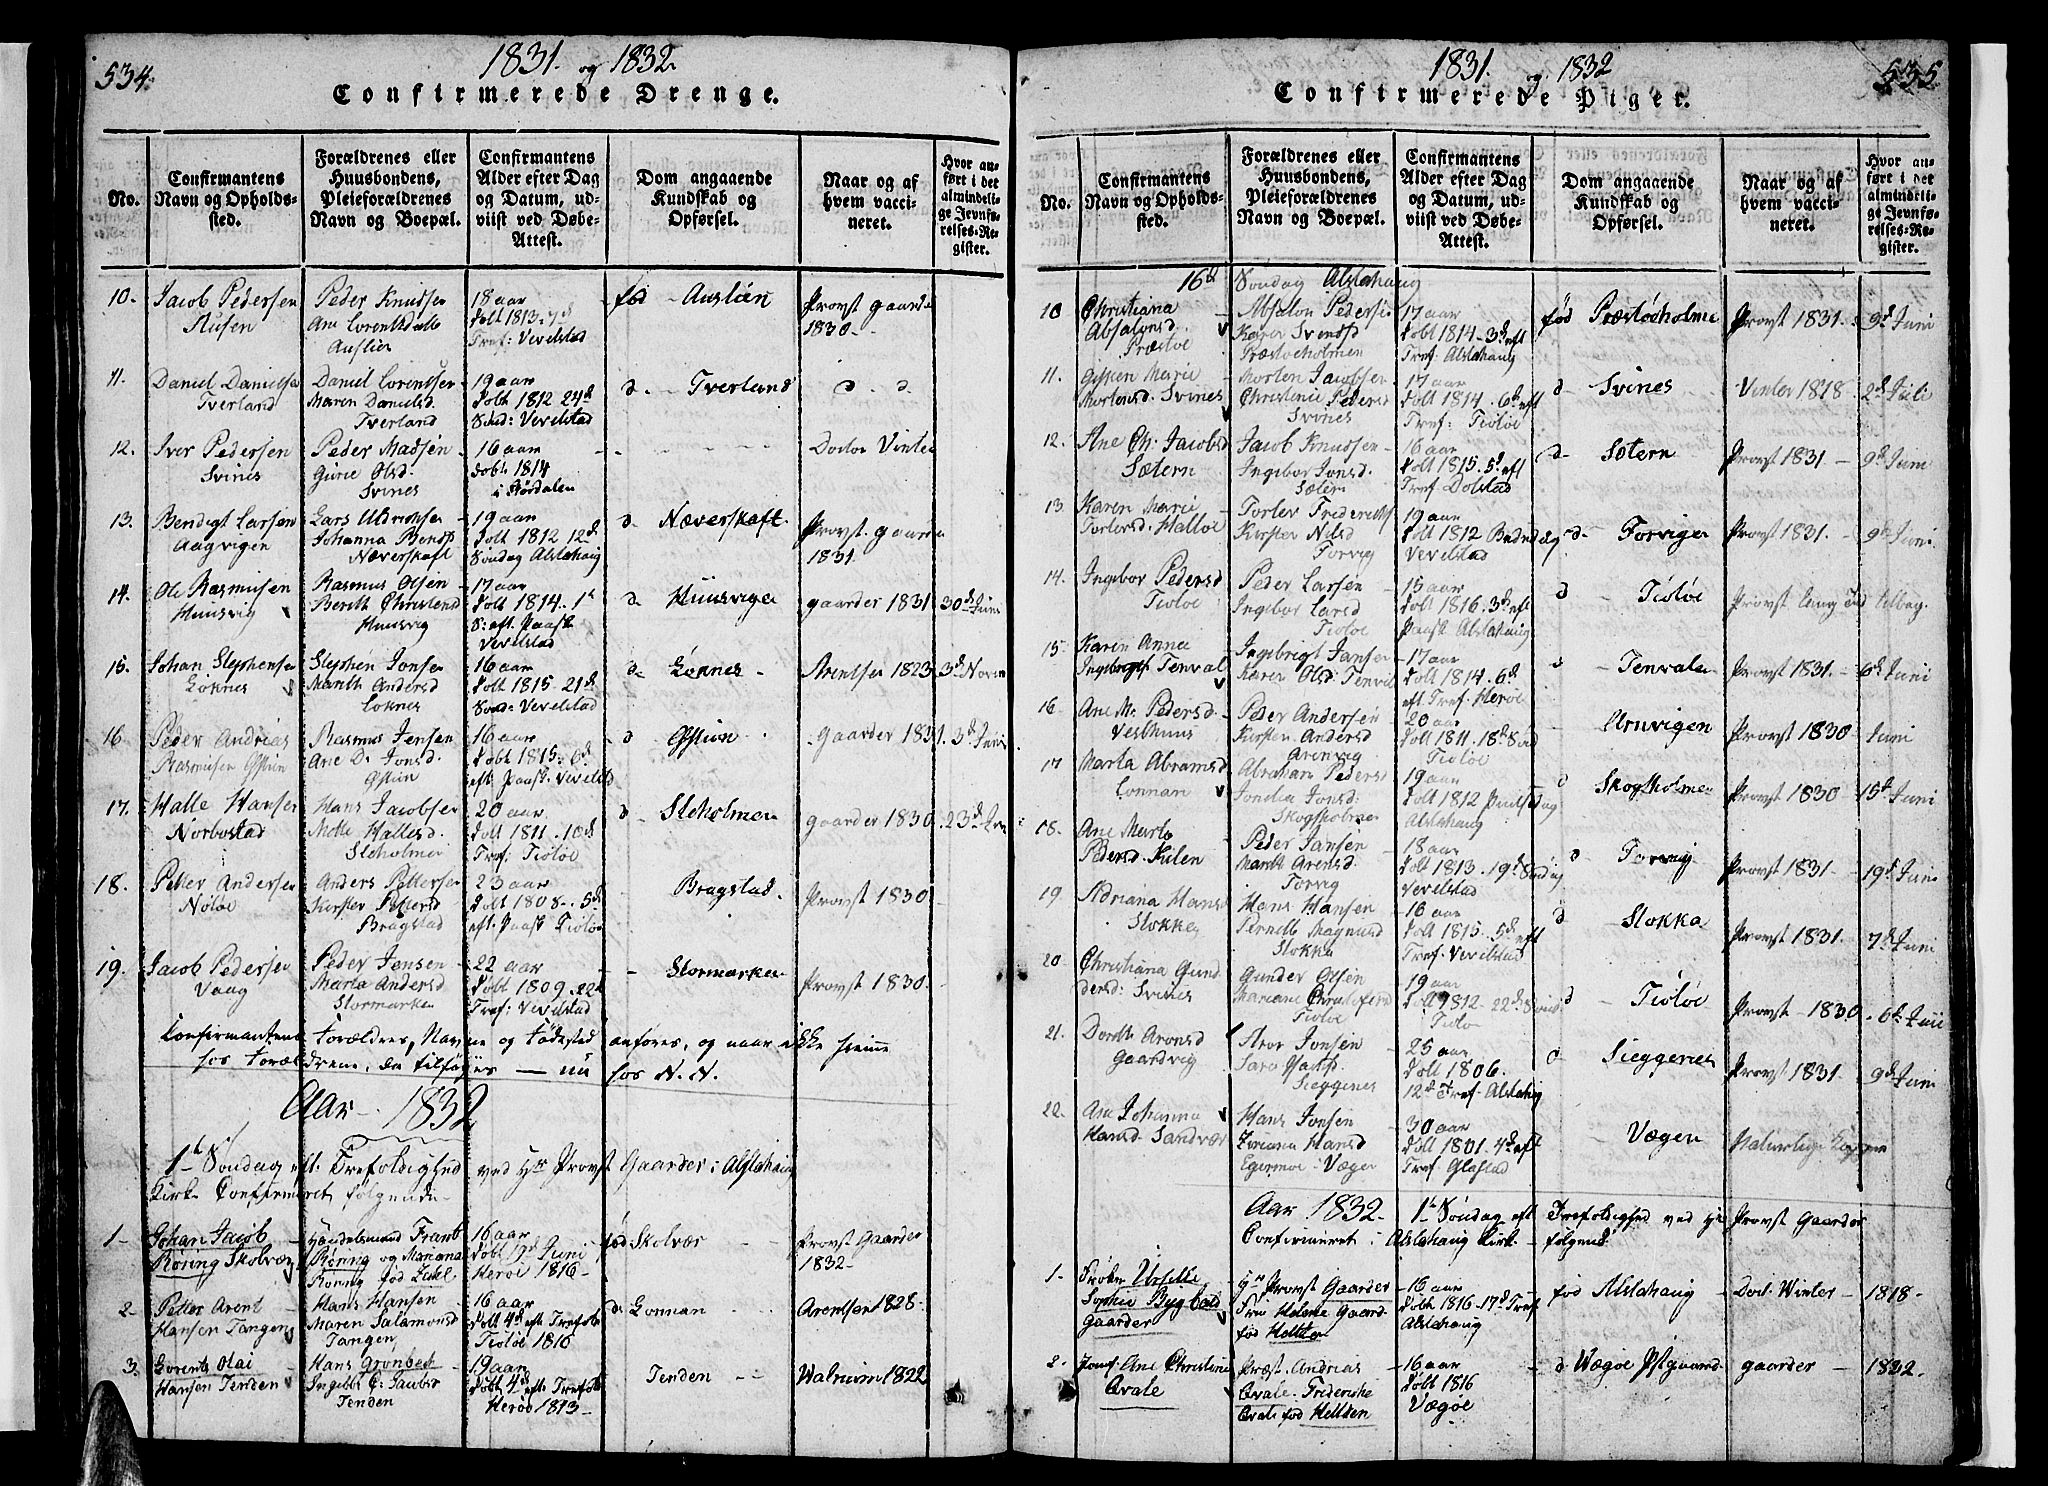 534.
1831. og 1832.
Confirmerede Drenge.
No.
Confirmantens Navn og Opholdssted.
Forældrenes eller Huusbondens, Pleieforældrenes Navn og Boepæl.
Confirmantens Alder efter Dag og Datum, udviist ved Døbe-Attest.
Dom angaaende Kundskab og Opførsel.
Naar og af hvem vaccineret.
Hvor anført i det almindelige Jevnførelses-Register.
10. Jacob Pedersen
Peder Knudsen
Auslien
18 aar
Døbt 1813. 7d
Tref: Vevelstad
fød Auslien
Provst Gaarder
1830
11. Daniel Danielsen
Tverland
Daniel Lorentsen
Maren Danielsd.
Tverland
19 aar
Døbt 1812 24d
Sønd: Vevelstad
d. Tverland
d. d.
12. Iver Pedersen
Svines
Peder Madsen
Gurie Olsd
Svines
16 aar
Døbt 1814
i Størdalen
Doctor Vinter
13. Bendigt Larsen
Aagvigen
Lars Uldrichsen
Johanna Bendsd
Næverskaft
19 aar
Døbt 1812 12d
Søndag Alstahaug
d Næverskaft
Provst. Gaarder
1831.
14. Ole Rasmusen
Huusvig
Rasmus Olsen
Bereth Christensd
Huusvig
17 aar
Døbt 1814. 1d
S: eft. Paask
Vevelstad
d Huusvigen
Gaarder 1831
30d Juni
15. Johan Stephensen
Loknes
Stephen Jonsen
Mareth Andersd
Loknes
16 aar
Døbt 1815. 21d
Sønd: Vevelstad
d. Loknes
Arentsen 1823
3d Novem
16 Peder Andrias
Rasmusen
Rasmus Jensen
Ane D. Jonsd.
16 aar
Døbt 1815. 6d
eft Paask. Vevelstad
d
Gaarder 1831.
3d Juni
17. Halle Hansen
Norbostad
Hans Jacobsen
Mette Hallesd.
Steholmen
20 aar
Døbt 1811. 10d
Tref: Tiøtøe
d. Steholmen
Gaarder 1830.
23d Juni
18. Petter Andersen
Anders Pettersen
Kirsten Pettersd
Bragstad
23 aar
Døbt 1808. 5d
eft. Paask Tiøtøe
Bragstad.
Provst 1830
19. Jacob Pedersen
Vaag
Peder Jensen
Marta Andersd
Stormarken
22 aar
Døbt 1809. 22d
Tref: Vevelstad
Stormarken
Provst 1830.
Confirmantens Forældres, Navne og Fødested anføres, og naar ikke hiemme
hos Forældrene, da tilføyes — nu hos N. N.
Aar 1832
1te Søndag eft. Trefoldighed ved Hr Provst Gaarder i Alstahaug
Kirke Confirmeret følgende
1 Johan Jacob
Røring Skolvær
Handelsmand Frantz
Røring og Mariana
Røring fød Zahl
16 aar
Døbt 17d Juni
Herøe 1816
fød Skolvær
Provst Gaarder
1832
2 Petter Arent
Hansen Tangen
Hans Hansen
Maren Salamonsd
Tangen
16 aar
Døbt 4d eft Trefold
Tiøtøe 1816
d. Lonnan
Arentsen 1828.
3. Lorents Olai
Hansen Tenden
Hans Grønbech
Ingeb: C: Jacobs
Tenden
19 aar
Døbt 4d eft Trefold
Herøe 1813
Tenden
Walnum 1822
535.
1831. og 1832
Confirmerede Piger.
No.
Confirmantens Navn og Opholdssted.
Forældrenes eller Huusbondens, Pleieforældrenes Navn og Boepæl.
Confirmantens Alder efter Dag og Datum, udviist ved Døbe-Attest.
Dom angaaende Kundskab og Opførsel.
Naar og af hvem vaccineret.
Hvor anført i det almindelige Jevnførelses-Register.
16d Søndag Alstahaug
10 Christiana
Absalonsd.
Præstøe
Absalon Pedersen
Karen Svendsd
Præstøeholmen
17 aar
Døbt 1814. 3d eft
Tref. Alstahaug
fød Præstøeholmen
Provst 1831.
9d Juni
11. Gisken Marie
Mortensd. Svines
Morten Jacobsen
Christine Pedersd
Svines
17 aar
Døbt 1814. 6d eft
Tref: Tiøtøe
d Svines
Vinter 1818
2d Juli
12. Ane Ch: Jacobsd
Sætern
Jacob Knudsen
Ingebor Jonsd.
Sætern
16 aar
Døbt 1815. 5d eft
Tref Dolstad
d. Sætern
Provst 1831
9d Juni
13. Karen Marie
Torlevsd.
Torlev Fridrichs
Kirsten Nilsd
Forvig
19 aar
Døbt 1812 Bededag
Vevelstad
d. Forvigen
Provst 1831.
9d Juni
14. Ingebor Pedersd
Tiøtøe
Peder Larsen
Ingebor Larsd
Tiøtøe
15 aar
Døbt 1816. 3d eft
Paask Alstahaug
d Tiøtøe
Provst lang Tid tilbag.
15 Karen Anna
Ingebrigtsd Tenval
Ingebrigt Jansen
Karen Olsd. Tenval
17 aar
Døbt 1814 6d
eft Tref. Herøe
d Tenvalen
Provst 1831.
6d Juni
16 Ane M. Pedersd.
Vesthuus
Peder Andersen
Kirsten Andersd
Arenvig
20 aar
Døbt 1811. 18d Sønd
Tiøtøe
Arnvigen
Provst 1830
Juni
17 Marta Abramsd
Lonnan
Abraham Pedersen
Jonsd:
Skogsholmen
19 aar
Døbt 1812
Alstahaug
d Skogsholmen
Provst 1830
15d Juni
18. Ane Marta
Pedersd. Kilen
Peder Jansen
Mareth Arensd.
Forvig
18 aar
Døbt 1813. 19d Søndag
Vevelstad
d Forvig
Provst 1831.
19d Juni
19 Adriana Hansd
Stokka
Hans Hansen
Pernille Magnusd
Stokka
16 aar
Døbt 1815. 5d eft
Tref. Vevelstad
d Stokka
Provst 1831.
7d Juni
20 Christiana Gundersd: Svines
Gunder Olsen
Mariane Christofersd
Tiøtøe
19 aar
Døbt 1812. 22d Sønd
Tiøtøe
d Tiøtøe
Provst 1830.
6d Juni
21. Dorth Aronsd
Gaardvig
Aron Jonsen
Sara
Sieggenes
25 aar
Døbt 1806.
12d Tref. Alstahaug
d Sieggenes
Provst 1831.
9d Juni
22. Ane Johanna
Hansd. Sandvær
Hans Jonsen
Hansd
Egermoe Vægen
30 aar
Døbt 1801. 4d eft
Tref Gladstad
Vægen
Naturlige Kopper
Aar 1832. 1te Søndag eft Trefoldighed ved Hr Provst Gaarder
Confirmeret i Alstahaug Kirke følgende
1. Frøken Ursella
Sophie Bygbald
Gaarder
Hr Provst Gaarder
Frue Helene Gaarder
fød Heltzen
16 aar
Døbt 1816. 17d Tref
Alstahaug
fød Alstahaug
Doct. Winter
1818.
2. Jomf. Ane Christine
Qvale
Præst. Andrias
Qvale. Friderike
Qvale fød Heltzen
16 aar
Døbt 1816
Vægøe
d Vægøe Pstgaard
Gaarder
1832.